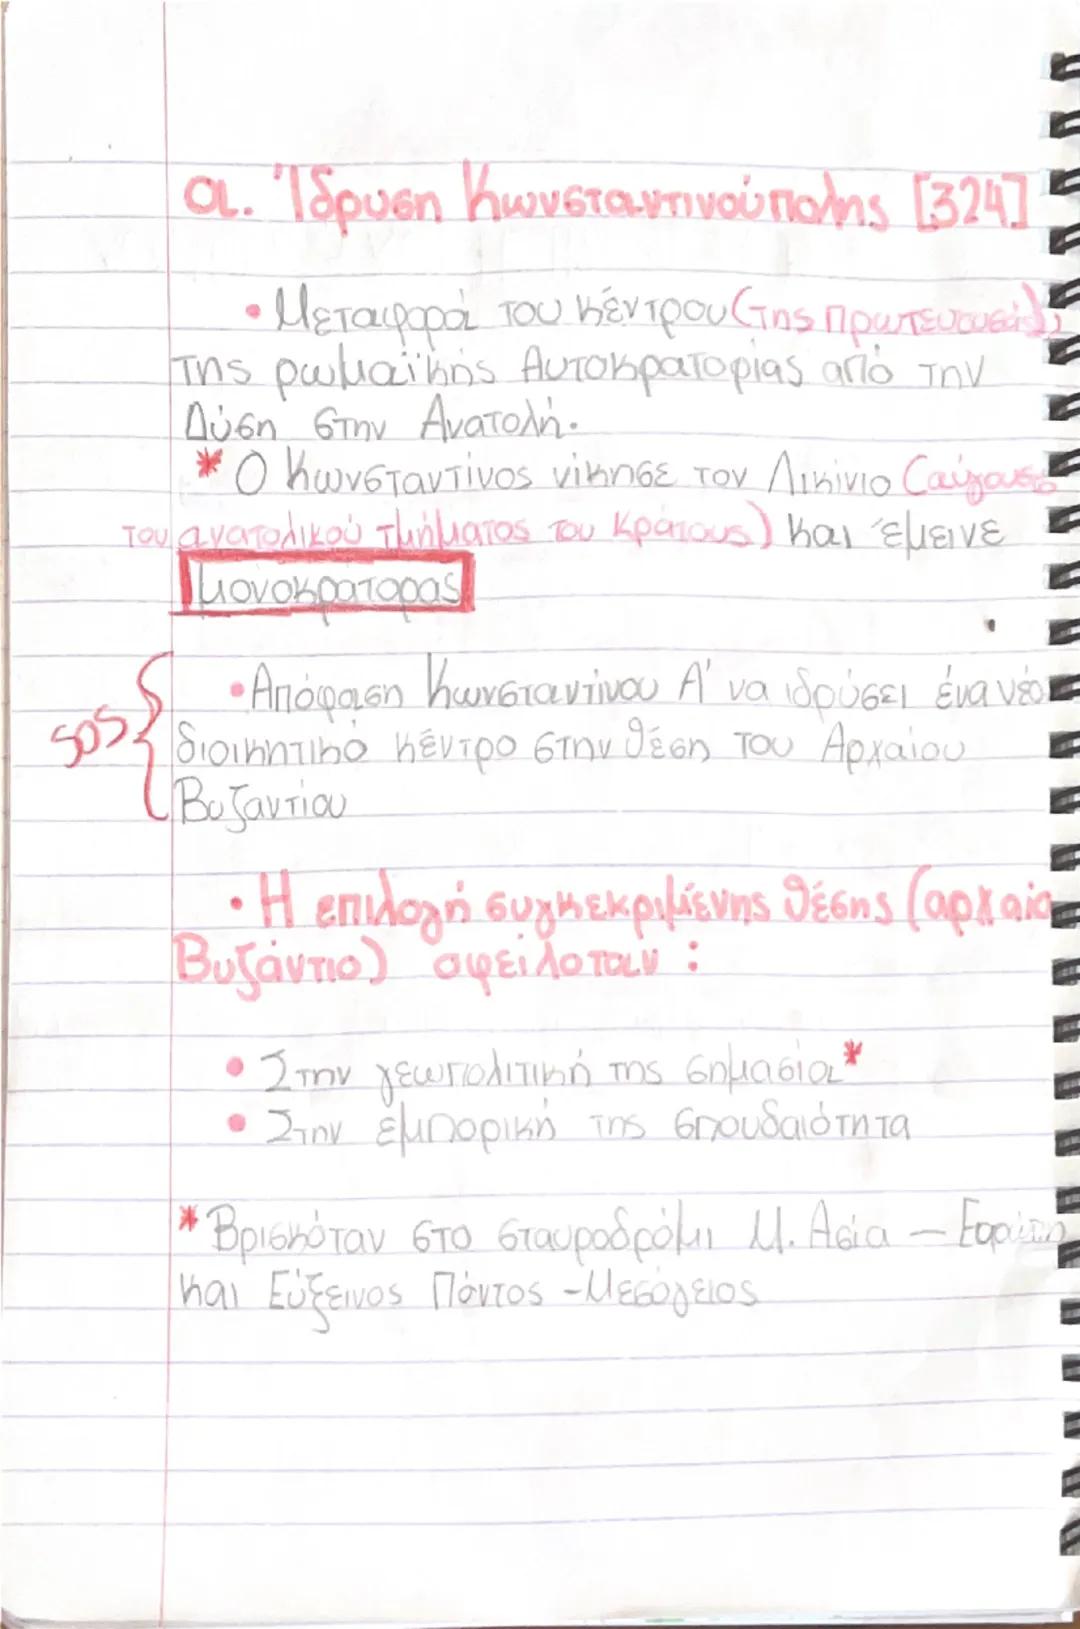 α. Ίδρυση Κωνσταντινούπολης [324]
• Μεταφορά του κέντρου (της πρωτευουσας),
της ρωμαϊκής Αυτοκρατορίας από την
Δύση στην Ανατολή.
* Ο Κωνσταντίνος νίκησε τον Λικίνιο (αύγουστο
του ανατολικού τμήματος του κράτους) και έμεινε
μονοκρατορας
• Απόφαση Κωνσταντίνου Α' να ιδρύσει ένα νέο
SOS
διοικητικό κέντρο στην θέση του Αρχαίου
Βυζαντίου
• Η επιλογή συγκεκριμένης θέσης (αρχαίο
Βυζάντιο) οφείλοταν :
• Στην γεωπολιτική της σημασία *
• Στην εμπορική της σπουδαιότητα
* Βρισκόταν στο σταυροδρόμι Μ. Ασία –
και Εύξεινος Πόντος - Μεσόγειος